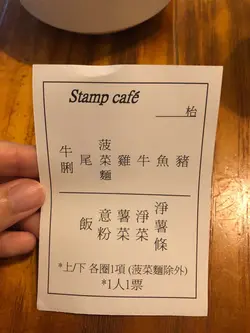 Stamp café
____枱
豬
魚
牛
雞
菠菜麵
尾
牛脷
淨薯條
淨菜
薯菜
意粉
飯
*上/下 各圈1項 (菠菜麵除外)
*1人1票